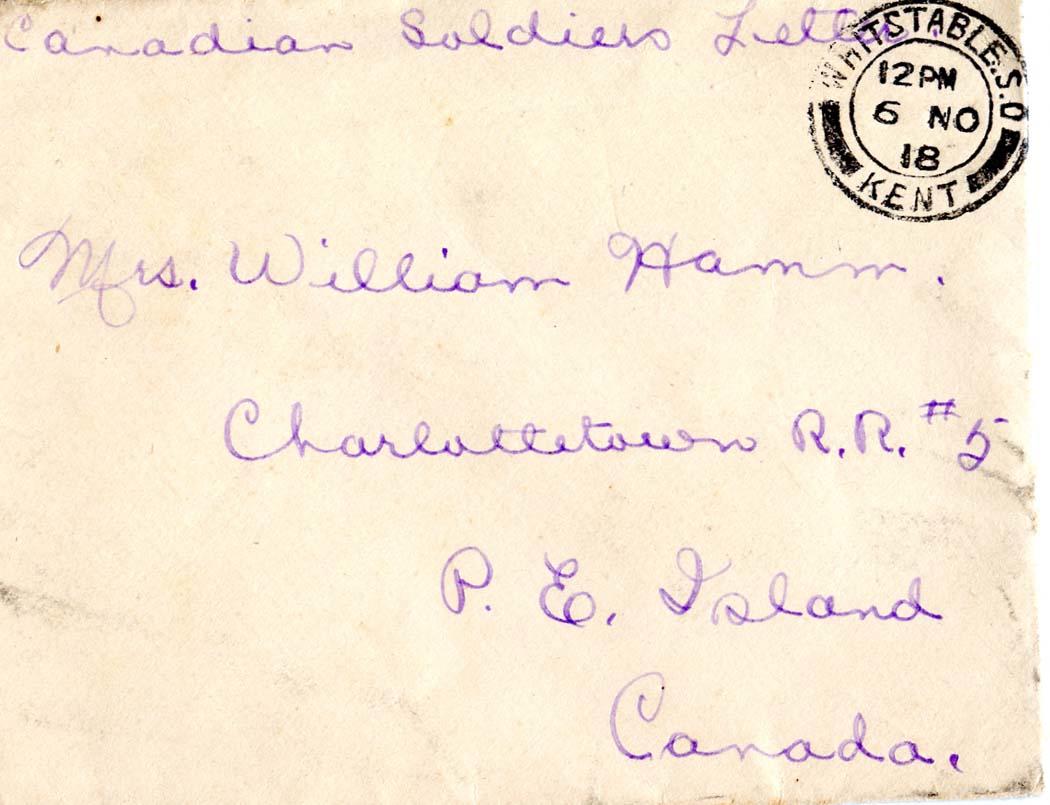 Canadian Soldiers Letter.
WHITSTABLE.S.O
12PM
6 NO
18
KENT
Mrs. William Hamm.
Charlottetown R.R. #5
P. E. Island
Canada.